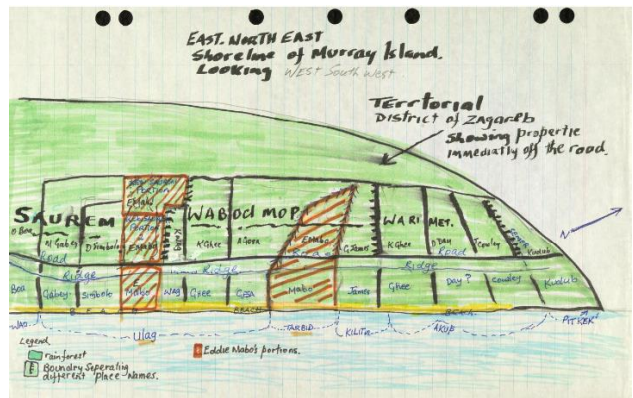 EAST. NORTH EAST
Shoreline of Murray Island.
Looking West South West
Territorial
District of Zagareb
Showing propertie
immediatly off the road.
SAUREM
WABOd MOP
WARI MET.
N
D Boa
N Gabey
D Simbolo
EMabo
EMabo
K Kaig
K Ghee
A Gesa
EMabo
G James
K Ghee
D Day
Cowley
Kudub
Road
Road
Road
Ridge
Ridge
Ridge
Boa
Gabey
Simbolo
Mabo
Wag
Ghee
Gesa
Mabo
James
Ghee
Day ?
Cowley
Kudub
BEACH
Ulag
TARBID
KILITA
AKUP
Legend
rainforest
Boundry Seperating
different Place-Names.
Eddie Mabo's portions.